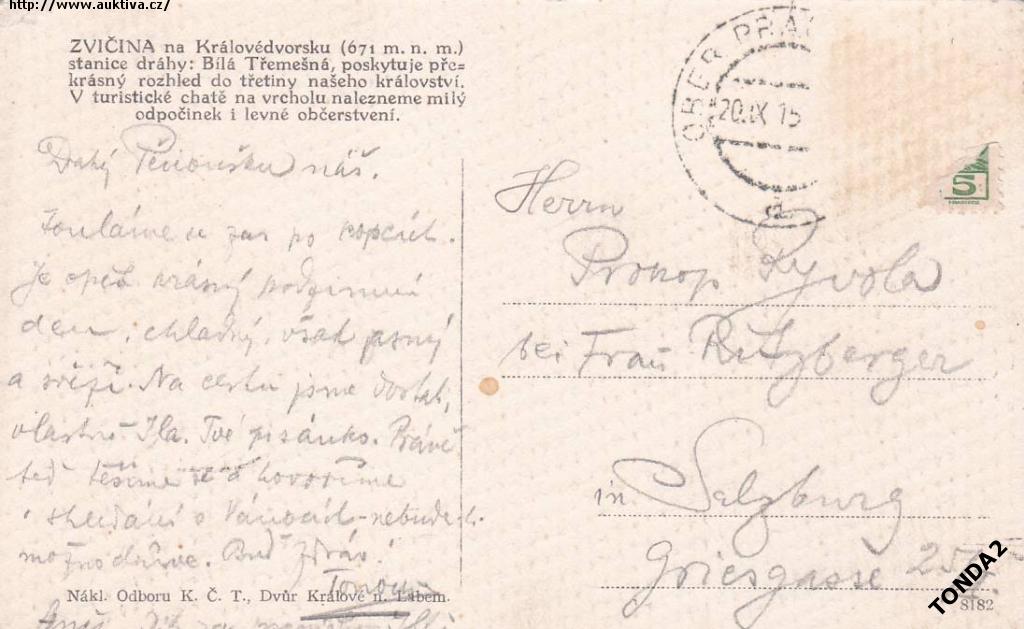 http://www.auktiva.cz/
ZVIČINA na Královédvorsku (671 m. n. m.)
stanice dráhy: Bílá Třemešná, poskytuje pře=
krásný rozhled do třetiny našeho království.
V turistické chatě na vrcholu nalezneme milý
odpočinek i levné občerstvení.
OBER PRA
20.IX 15
5
Drahý náš.
Touláme se zas po kopcích.
Je opět krásný podzimní
den, chladný, však jasný
a svěží. Na cestu jsme dostali,
vlastně Tvé psaníčko. Právě
teď těšíme se a hovoříme
shledání o Vánocích nebude-li
možno dříve. Buď zdráv!
Herrn
Prokop Pyvola
bei Frau Ritzberger
in Salzburg
Griesgasse 25
Nákl. Odboru K. Č. T., Dvůr Králové n. Labem.
8182
TONDA2